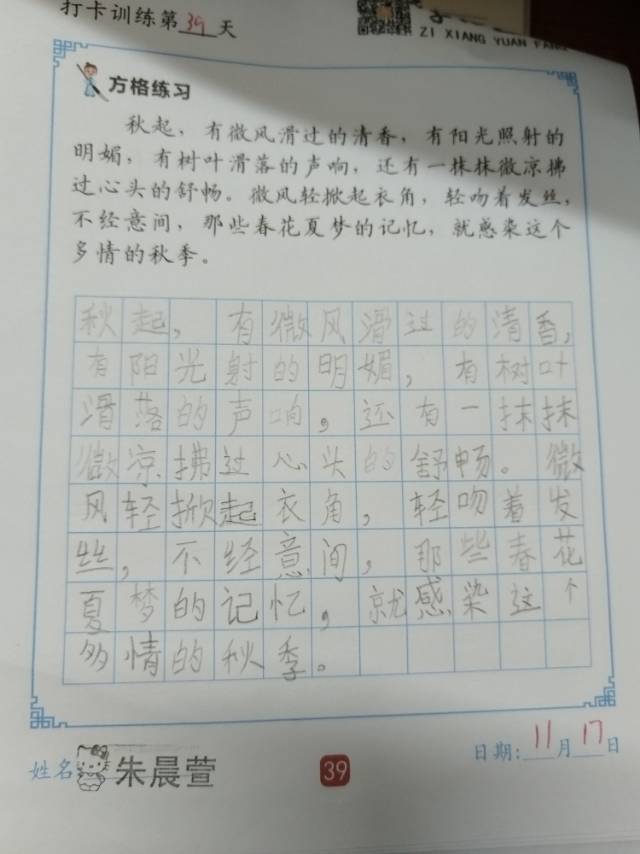 打卡训练第39天
ZI XIANG YUAN
方格练习
秋起，有微风滑过的清香，有阳光照射的
明媚，有树叶滑落的声响，还有一抹抹微凉拂
过心头的舒畅。微风轻掀起衣角，轻吻着发丝，
不经意间，那些春花夏梦的记忆，就感染这个
多情的秋季。
秋起，有微风滑过的清香，
有阳光射的明媚，有树叶
滑落的声响，还有一抹抹
微凉拂过心头的舒畅。微
风轻掀起衣角，轻吻着发
丝，不经意间，那些春花
夏梦的记忆，就感染这个
多情的秋季。
姓名 朱晨萱
39
日期:11月17日